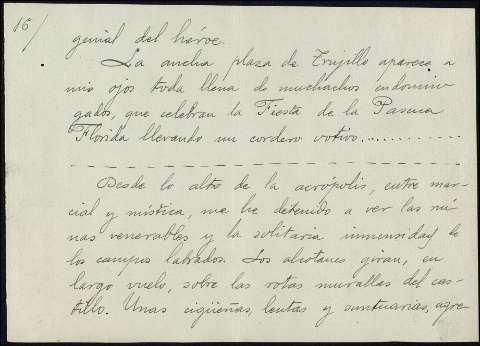 15/
genial del héroe.
La ancha plaza de Trujillo aparece a
mis ojos toda llena de muchachos endomin-
gados, que celebran la Fiesta de la Pascua
Florida llevando un cordero votivo...........
Desde lo alto de la acrópolis, entre mar-
cial y mística, me he detenido a ver las rui-
nas venerables y la solitaria inmensidad de
los campos labrados. Los alcotanes giran, en
largo vuelo, sobre las rotas murallas del cas-
tillo. Unas cigüeñas, lentas y suntuarias, agre-